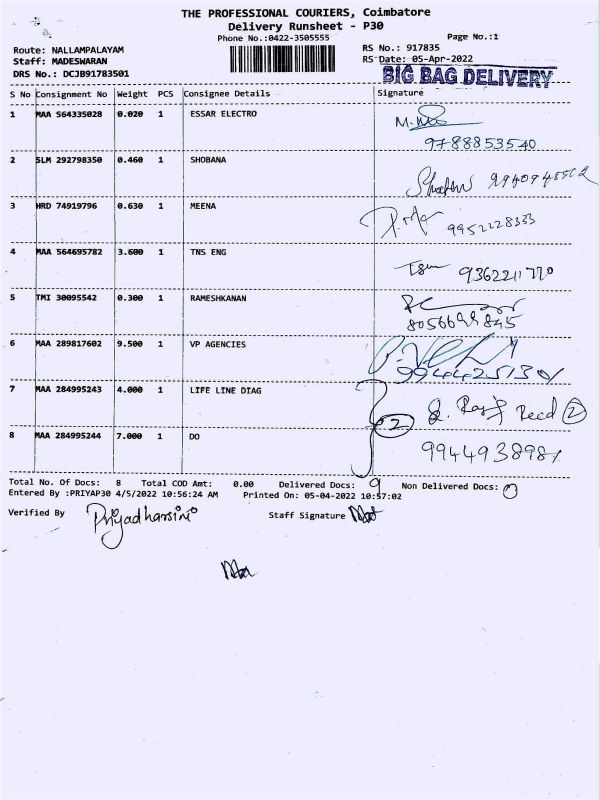 THE PROFESSIONAL COURIERS, Coimbatore
Delivery Runsheet - P30
Phone No.:0422-3505555
Page No.:1
Route: NALLAMPALAYAM
RS No.: 917835
Staff: MADESWARAN
RS Date: 05-Apr-2022
DRS No.: DCJB91783501
BIG BAG DELIVERY
S No Consignment No Weight PCS Consignee Details Signature
1 MAA 564335028 0.020 1 ESSAR ELECTRO
9788853540
2 SLM 292798350 0.460 1 SHOBANA
3 HRD 74919796 0.630 1 MEENA
9952228333
4 MAA 564695782 3.600 1 TNS ENG
9362211770
5 TMI 30095542 0.300 1 RAMESHKANAN
6 MAA 289817602 9.500 1 VP AGENCIES
7 MAA 284995243 4.000 1 LIFE LINE DIAG
2 Recd 2
8 MAA 284995244 7.000 1 DO
Total No. Of Docs: 8 Total COD Amt: 0.00 Delivered Docs: 9 Non Delivered Docs: 0
Entered By :PRIYAP30 4/5/2022 10:56:24 AM Printed On: 05-04-2022 10:57:02
Verified By Priyadharsini Staff Signature